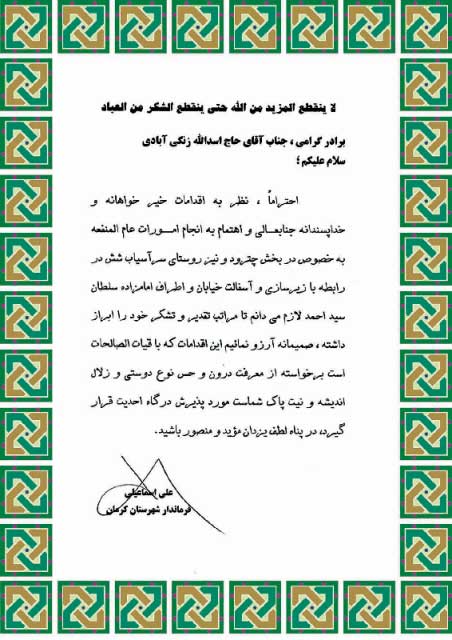 لا ینقطع المزید من الله حتی ینقطع الشکر من العباد
برادر گرامی ، جناب آقای حاج اسدالله زنگی آبادی
سلام علیکم ؛
احتراماً ، نظر به اقدامات خیر خواهانه و
خداپسندانه جنابعـالی و اهتمام به انجام امـورات عام المنفعه
به خصوص در بخش چترود و نیز روستای سرآسیاب شش در
رابطه با زیرسازی و آسفالت خیابان و اطراف امامزاده سلطان
سید احمد لازم می دانم تا مراتب تقدیر و تشکر خود را ابراز
داشته ، صمیمانه آرزو نمائیم این اقدامات که با قیات الصالحات
است برخواسته از معرفت درون و حس نوع دوستی و زلال
اندیشه و نیت پاک شماست مورد پذیرش درگاه احدیت قرار
گیرد، در پناه لطف یزدان مؤید و منصور باشید.
علی اسماعیلی
فرماندار شهرستان کرمان